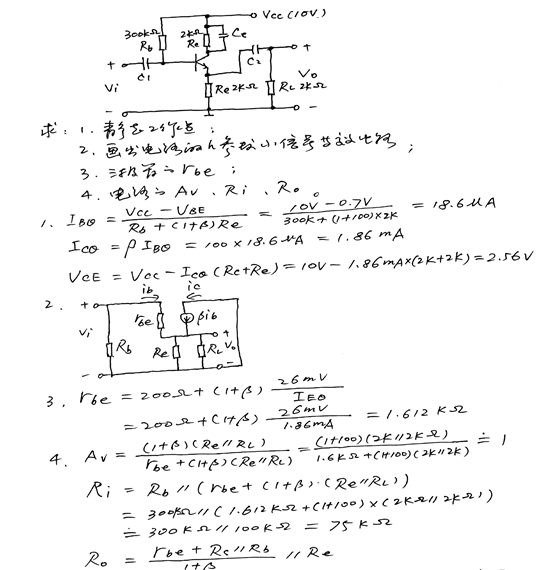 Vcc (10V)
300KΩ 2KΩ
Rb Re Ce
+ C1 C2 +
Vi Re 2KΩ RL 2KΩ Vo
- -
求: 1. 静态工作点;
2. 画出电路的h参数小信号等效电路;
3. 三极管的 rbe;
4. 电路的 Av、Ri、Ro。
1. IBQ = (Vcc - VBE) / (Rb + (1+β)Re) = (10V - 0.7V) / (300K + (1+100)×2K) = 18.6μA
ICQ = βIBQ = 100 × 18.6μA = 1.86 mA
VCE = Vcc - ICQ (Rc+Re) = 10V - 1.86mA×(2K+2K) = 2.56V
2. + ib ic
Vi rbe βib
Rb Re RL Vo +
- -
3. rbe = 200Ω + (1+β) 26mV / IEQ
= 200Ω + (1+β) 26mV / 1.86mA = 1.612 KΩ
4. Av = (1+β)(Re//RL) / (rbe + (1+β)(Re//RL)) = (1+100)(2K//2KΩ) / (1.6KΩ + (1+100)(2K//2K)) ≐ 1
Ri = Rb // (rbe + (1+β)·(Re//RL))
= 300KΩ // (1.612KΩ + (1+100) × (2KΩ // 2KΩ))
≐ 300KΩ // 100KΩ = 75KΩ
Ro = (rbe + Rc//Rb) / (1+β) // Re